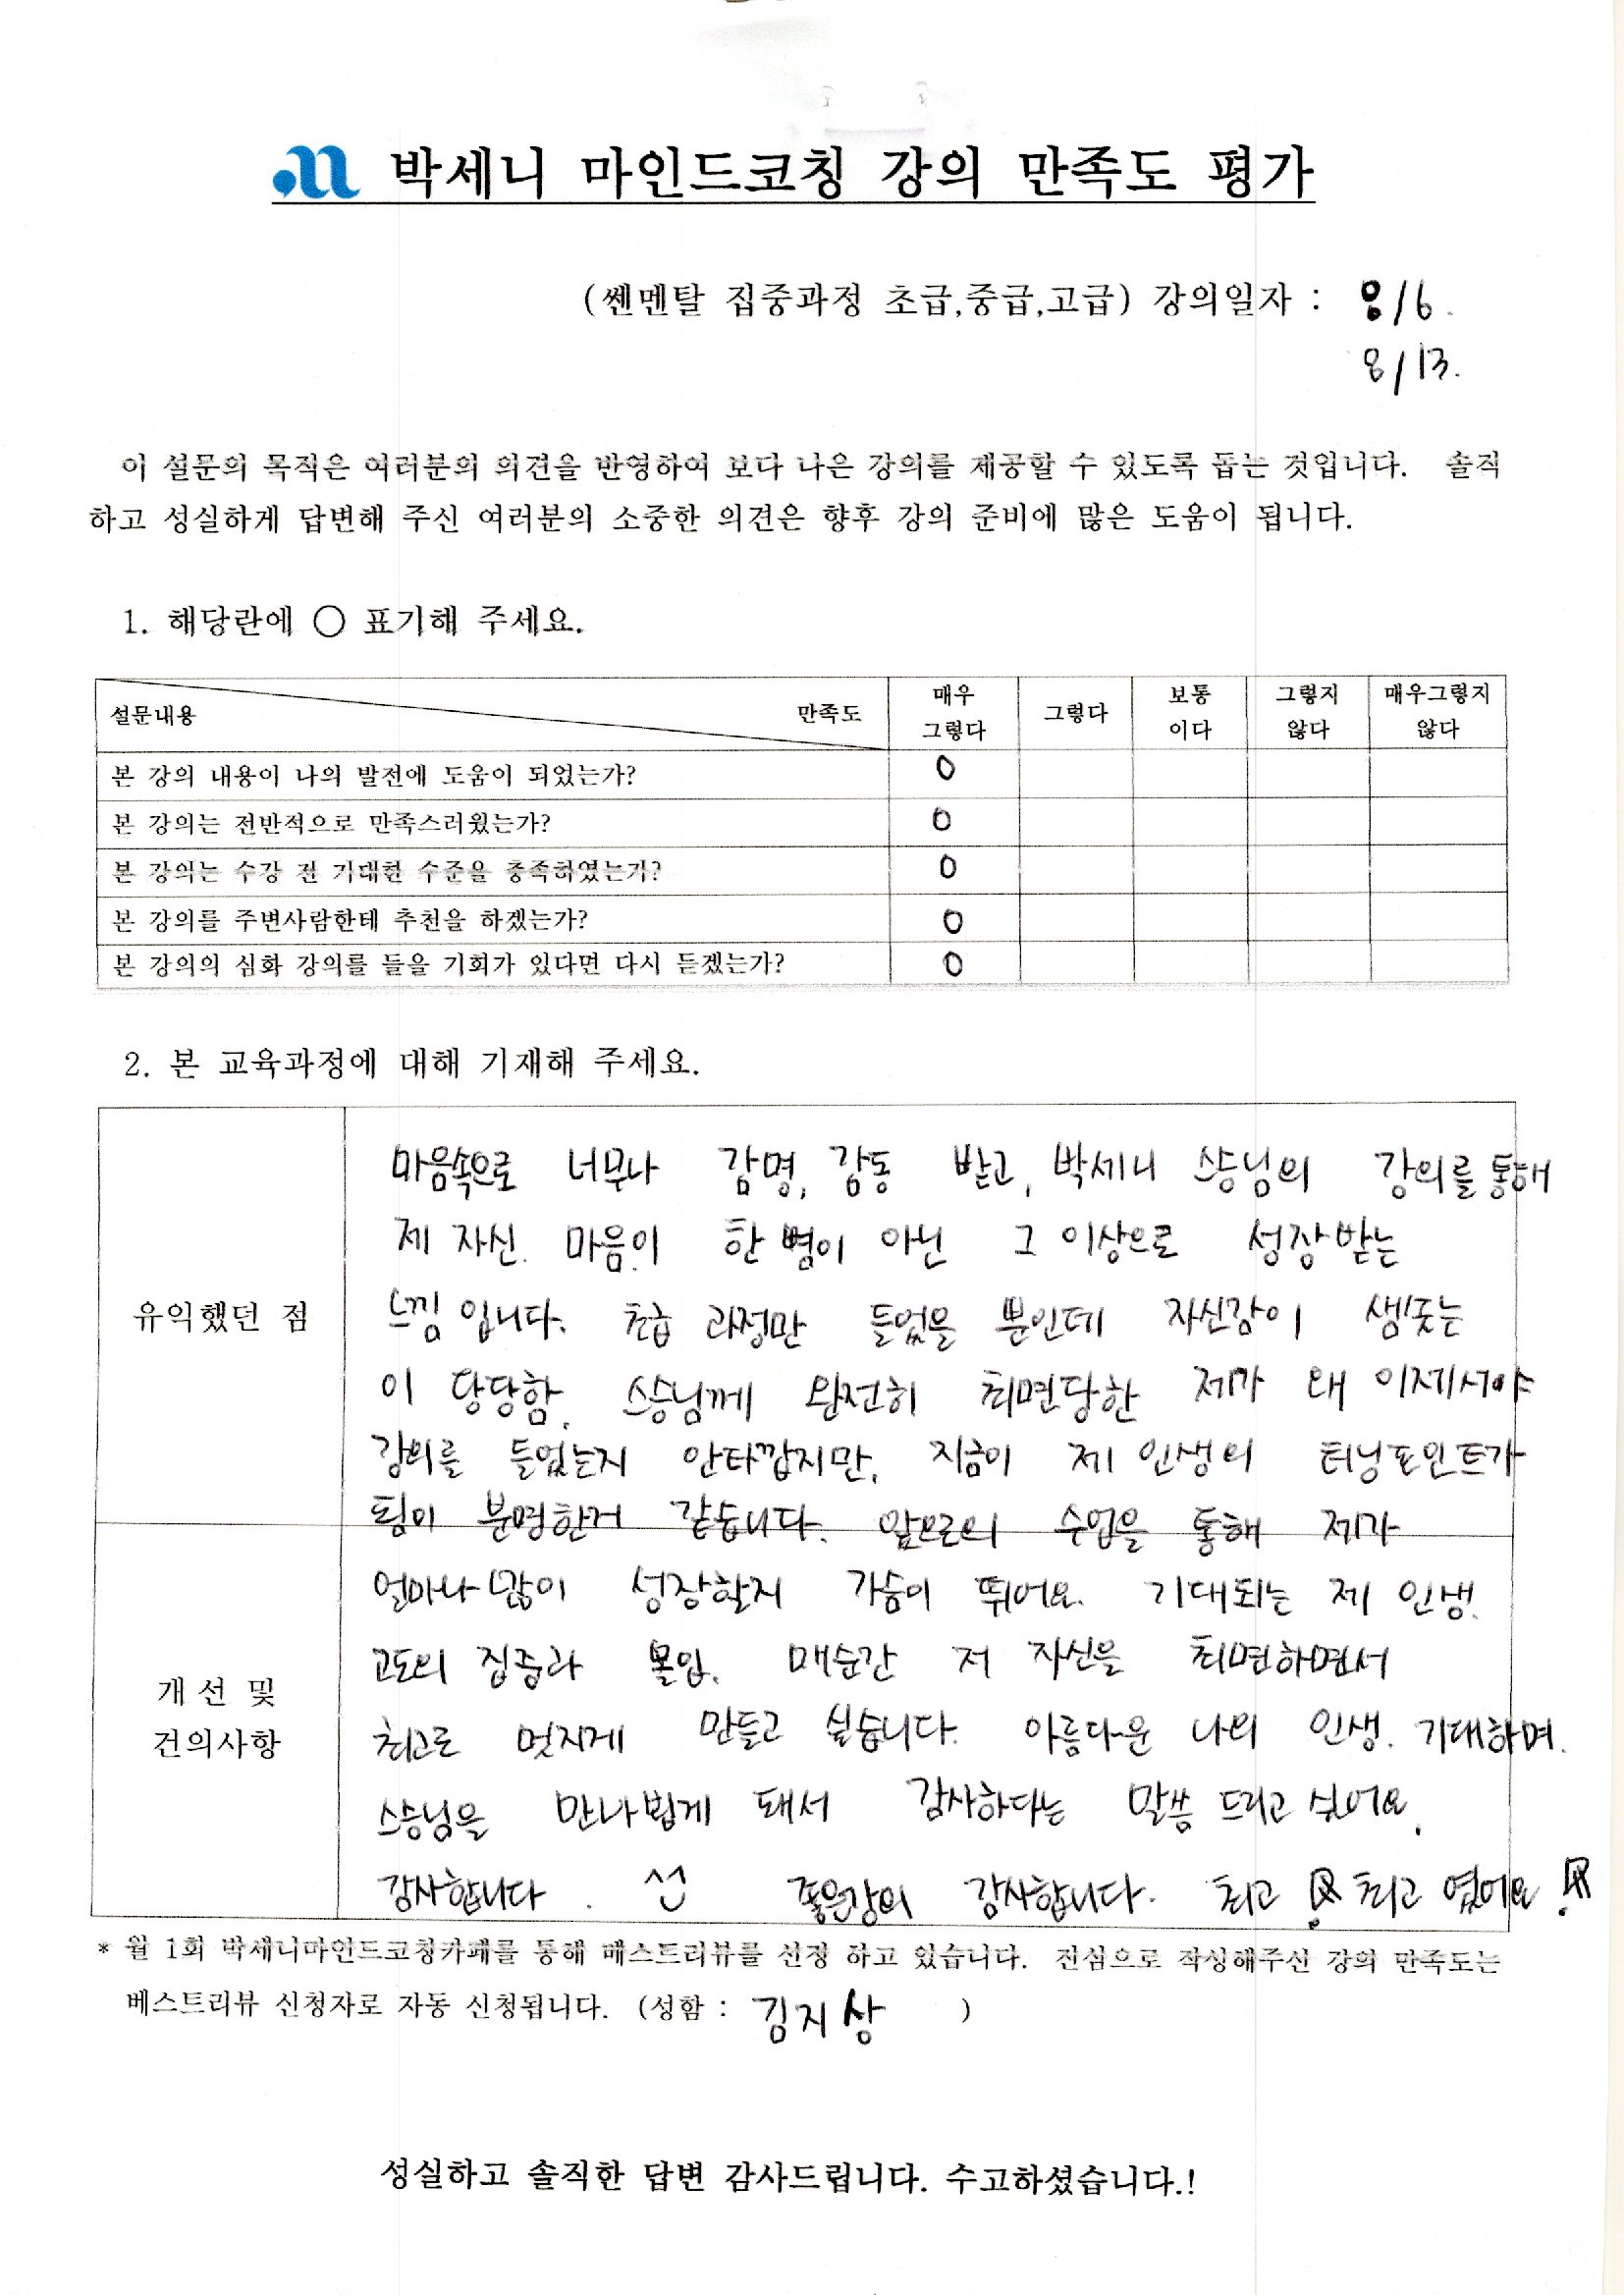 박세니 마인드코칭 강의 만족도 평가
(쎈멘탈 집중과정 초급,중급,고급) 강의일자 : 8/6.
8/13.
이 설문의 목적은 여러분의 의견을 반영하여 보다 나은 강의를 제공할 수 있도록 돕는 것입니다. 솔직
하고 성실하게 답변해 주신 여러분의 소중한 의견은 향후 강의 준비에 많은 도움이 됩니다.
1. 해당란에 ○ 표기해 주세요.
설문내용 만족도 매우 그렇다 그렇다 보통 이다 그렇지 않다 매우그렇지 않다
본 강의 내용이 나의 발전에 도움이 되었는가? O
본 강의는 전반적으로 만족스러웠는가? O
본 강의는 수강 전 기대한 수준을 충족하였는가? O
본 강의를 주변사람한테 추천을 하겠는가? O
본 강의의 심화 강의를 들을 기회가 있다면 다시 듣겠는가? O
2. 본 교육과정에 대해 기재해 주세요.
유익했던 점
마음속으로 너무나 감명, 감동 받고, 박세니 스승님의 강의를 통해
제 자신. 마음이 한 뼘이 아닌 그 이상으로 성장받는
느낌입니다. 초급 과정만 들었을 뿐인데 자신감이 샘솟는
이 당당함, 스승님께 완전히 최면당한 제가 왜 이제서야
강의를 들었는지 안타깝지만, 지금이 제 인생의 터닝포인트가
됨이 분명한거 같습니다. 앞으로의 수업을 통해 제가
개선 및
건의사항
얼마나 많이 성장할지 가슴이 뛰어요. 기대되는 제 인생.
고도의 집중과 몰입. 매순간 저 자신을 최면하면서
최고로 멋지게 만들고 싶습니다. 아름다운 나의 인생. 기대하며.
스승님을 만나뵙게 돼서 감사하다는 말씀 드리고 싶어요.
감사합니다. ^^ 좋은강의 감사합니다. 최고! 최고 였어요!
* 월 1회 박세니마인드코칭카페를 통해 베스트리뷰를 선정 하고 있습니다. 진심으로 작성해주신 강의 만족도는
베스트리뷰 신청자로 자동 신청됩니다. (성함 : 김지상 )
성실하고 솔직한 답변 감사드립니다. 수고하셨습니다.!